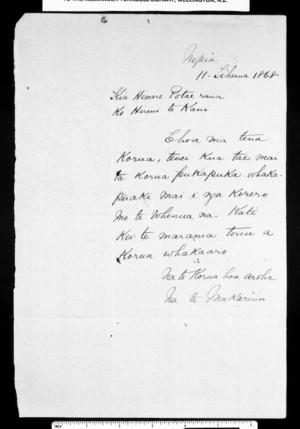 TO THE ALEXANDER TURNBULL LIBRARY, WELLINGTON, N.Z.
Nepia
11. Tihema 1868
Kia Henare Potae raua
Ko Hirini te Kani
Ehoa ma tena
Korua, tenei kua tae mai
te Korua pukapuka whaka-
puaki mai i nga Korero
mo te Whenua na. Kati
Kei te marama tonu a
Korua whakaaro
Na to Korua hoa aroha
Na te Makarini